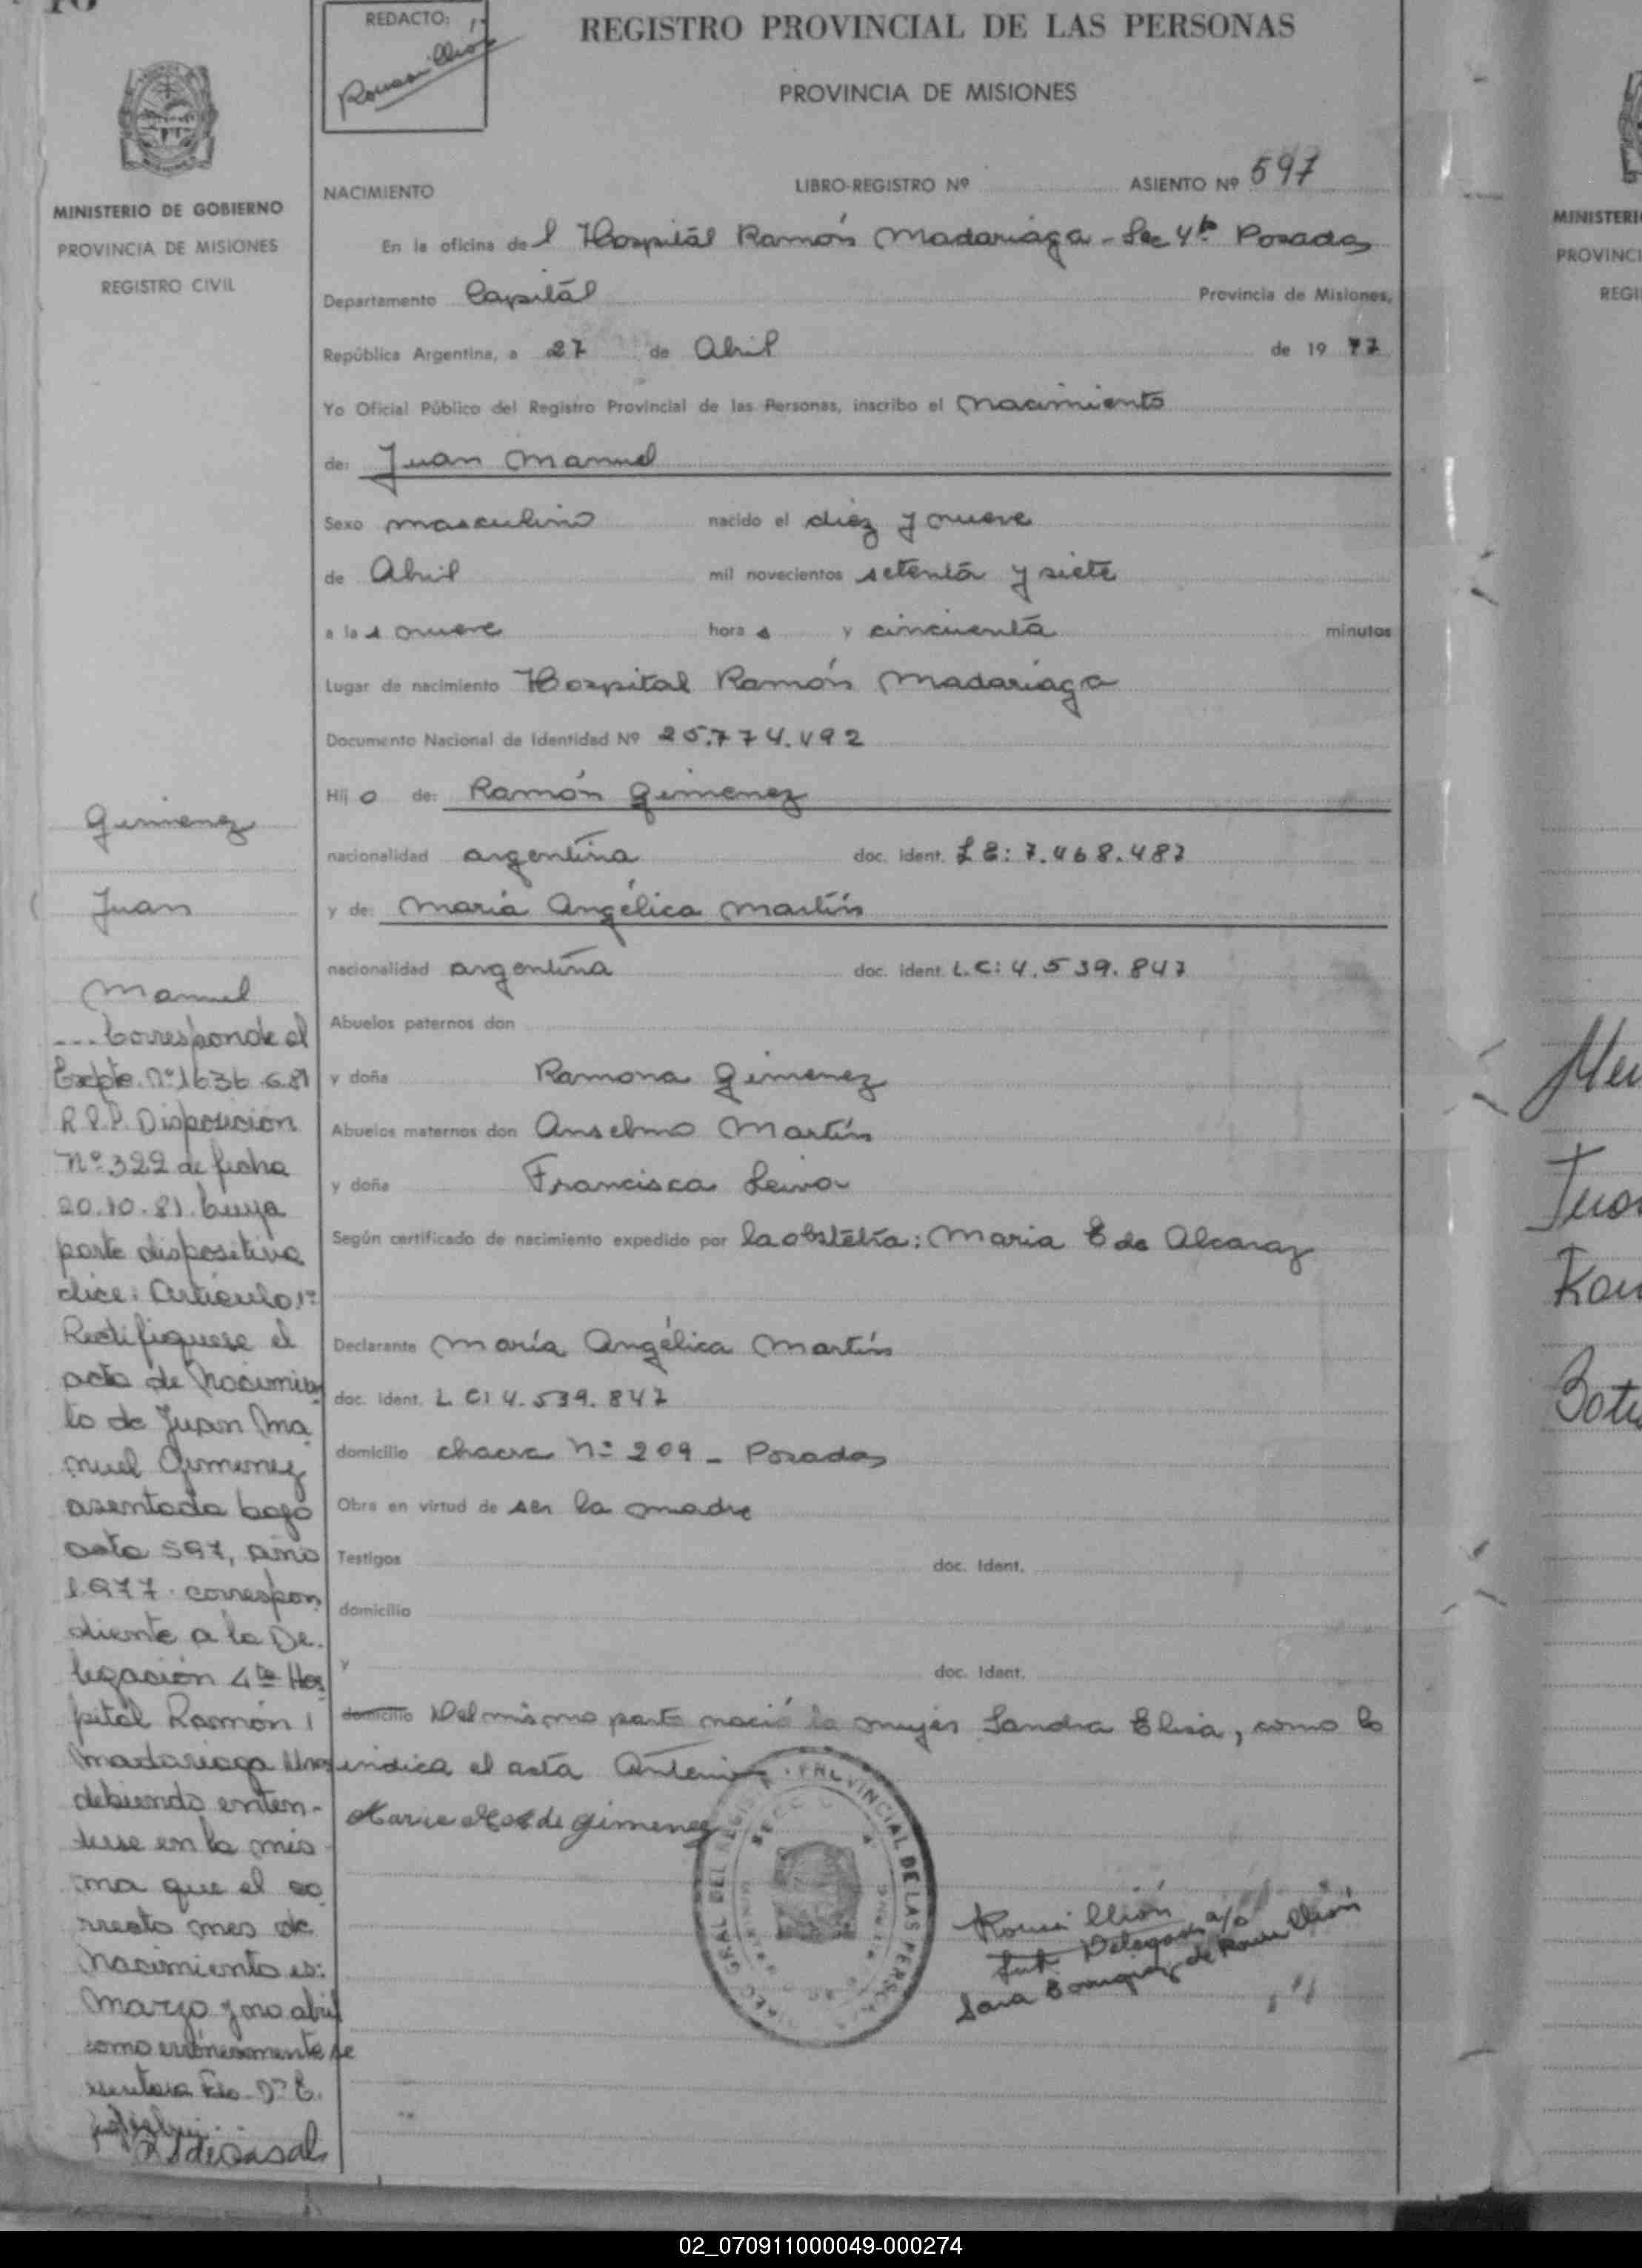 REDACTO:
REGISTRO PROVINCIAL DE LAS PERSONAS
PROVINCIA DE MISIONES
MINISTERIO DE GOBIERNO
PROVINCIA DE MISIONES
REGISTRO CIVIL
NACIMIENTO LIBRO-REGISTRO Nº ASIENTO Nº 597
En la oficina del Hospitál Ramón Madariaga - Sec 4ta Posadas
Departamento Capitál Provincia de Misiones,
República Argentina, a 27 de Abril de 1977
Yo Oficial Público del Registro Provincial de las Personas, inscribo el nacimiento
de: Juan Manuel
Sexo masculino nacido el diez y nueve
de Abril mil novecientos setenta y siete
a las nueve horas y cincuenta minutos
Lugar de nacimiento Hospital Ramón Madariaga
Documento Nacional de Identidad Nº 25.774.492
Hijo de: Ramón Gimenez
nacionalidad argentina doc. ident. L E: 7.468.487
y de: María Angélica Martín
nacionalidad argentina doc. ident. L.C: 4.539.847
Abuelos paternos don
y doña Ramona Gimenez
Abuelos maternos don Anselmo Martín
y doña Francisca Leiva
Según certificado de nacimiento expedido por la obstetra: Maria E de Alcaraz
Declarante María Angélica Martín
doc. ident. L C: 4.539.847
domicilio chacra Nº 209 - Posadas
Obra en virtud de ser la madre
Testigos doc. Ident.
domicilio
y doc. Ident.
domicilio Del mismo parto nació la mujer Sandra Elisa, como lo
indica el acta Anterior
de Gimenez
Gimenez
Juan
Manuel
... Corresponde al
Expte. nº 1636-G-81
R.P.P. Disposicion
Nº 322 de fecha
20.10.81. Cuya
parte dispositiva
dice: Artículo 1º
Rectifiquese el
acta de Nacimien
to de Juan Ma
nuel Gimenez
asentada bajo
acta 597, año
1977 correspon
diente a la De-
legación 4ta Hos
pital Ramón
Madariaga
debiendo enten-
derse en la mis
ma que el co
rrecto mes de
Nacimiento es:
Marzo y no abril
como erróneamente se
PROVINCIAL DE LAS PERSONAS
02_070911000049-000274
MINISTERI
PROVINCI
REGI